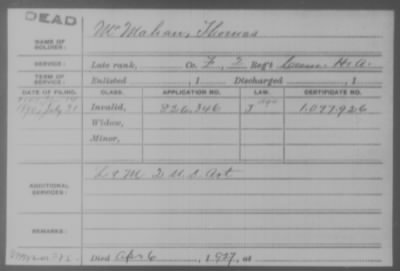 DEAD
NAME OF SOLDIER: McMahan, Thomas
SERVICE: Late rank, Co. F, 2 Reg't Conn. H.A.
TERM OF SERVICE: Enlisted , 1 Discharged , 1
DATE OF FILING. CLASS. APPLICATION NO. LAW. CERTIFICATE NO.
July 21 Invalid, 826,346 J 1,077,926
Widow,
Minor,
ADDITIONAL SERVICES: L & M 2 U.S. Art
REMARKS:
Died Apr 6, 1927, at